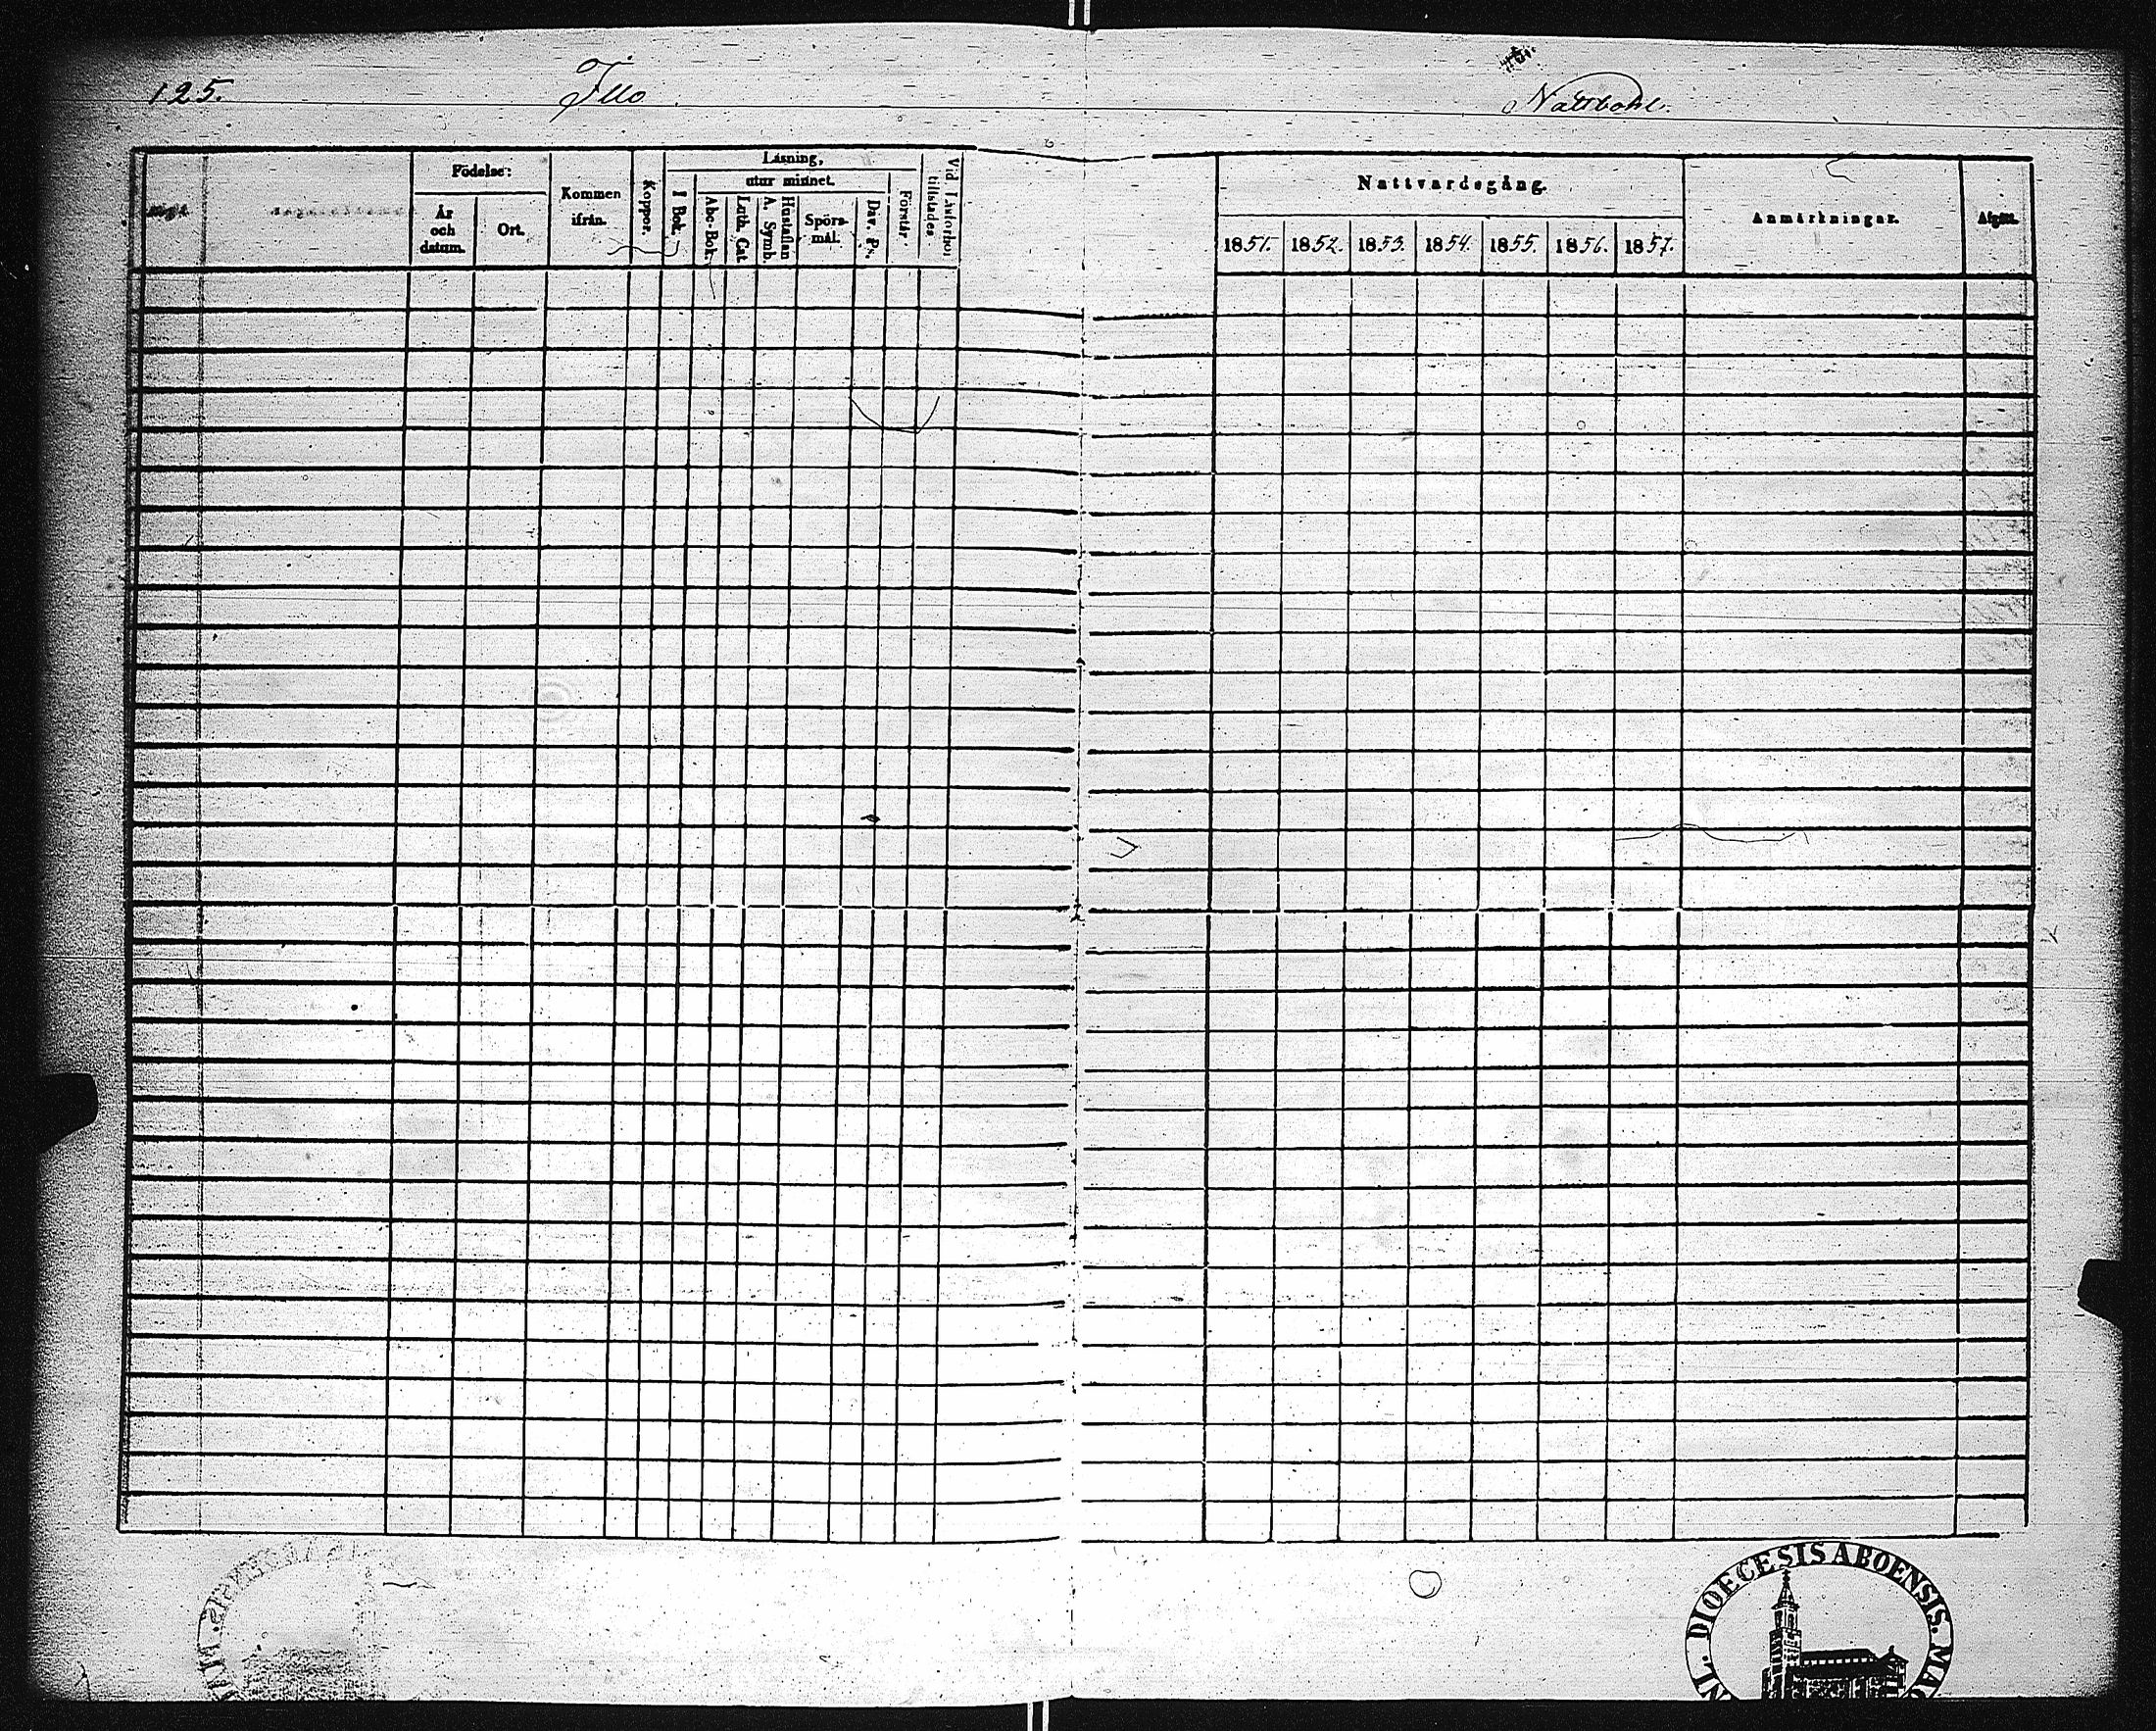 125.
Illo
Nättbohl.
Födelse:
År och datum.
Ort.
Kommen ifrån.
Koppor.
Läsning,
I Bok.
utur minnet.
Abc-Bok.
Luth. Cat.
Hustaflan A. Symb.
Spörs-mål.
Dav. Ps.
Förstår.
Vid Läsförhör tillstädes
Nattvardsgång.
1851. 1852. 1853. 1854. 1855. 1856. 1857.
Anmärkningar.
DIOECESIS ABOENSIS. MAG